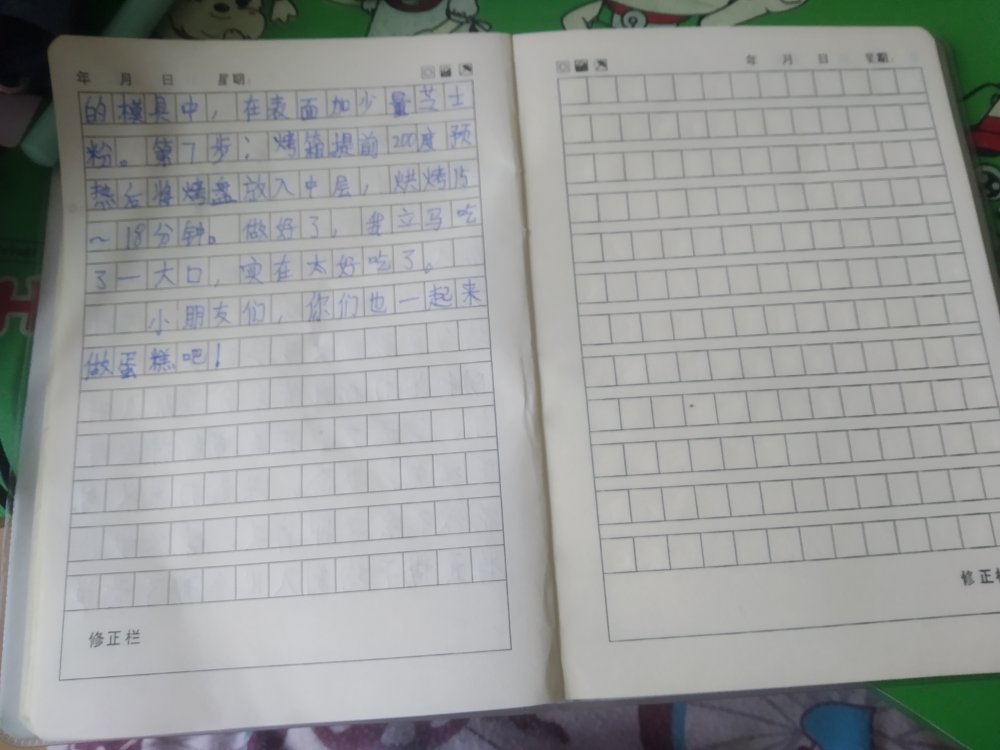 年 月 日 星期:
的模具中，在表面加少量芝士
粉。第7步：烤箱提前200度预
热后将烤盘放入中层，烘烤15
～18分钟。做好了，我立马吃
了一大口，实在太好吃了。
小朋友们，你们也一起来
做蛋糕吧！
修正栏
年 月 日 星期:
修正栏